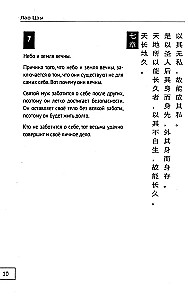 Лао Цзы
7
Небо и земля вечны.
Причина того, что небо и земля вечны, за-
ключается в том, что они существуют не для
самих себя. Вот почему они вечны.
Святой муж заботится о себе после других,
поэтому он легко достигает безопасности.
Он оставляет свое тело без всякой заботы,
поэтому он будет жить долго.
Кто не заботится о себе, тот весьма удачно
совершит и своё личное дело.
七章
天長地久。
天地所以能長且久者。以其不自生。故能長久。
是以聖人後其身而身先。外其身而身存。
以其無私。故能成其私。
10